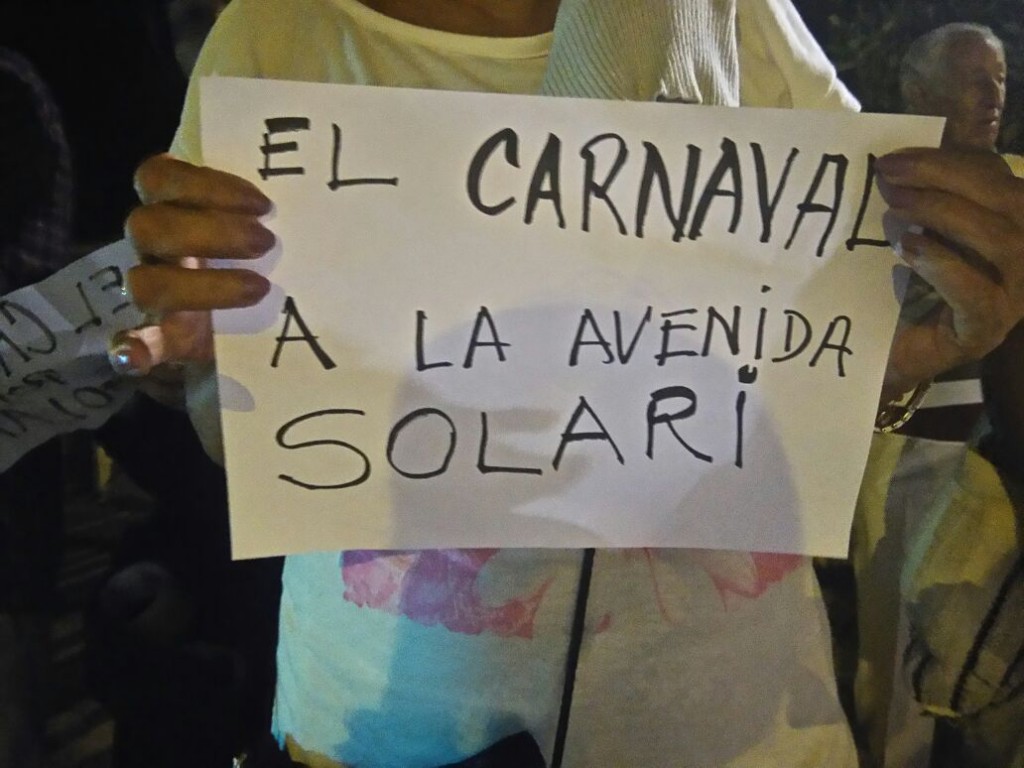 EL CARNAVAL
A LA AVENIDA
SOLARI
EL